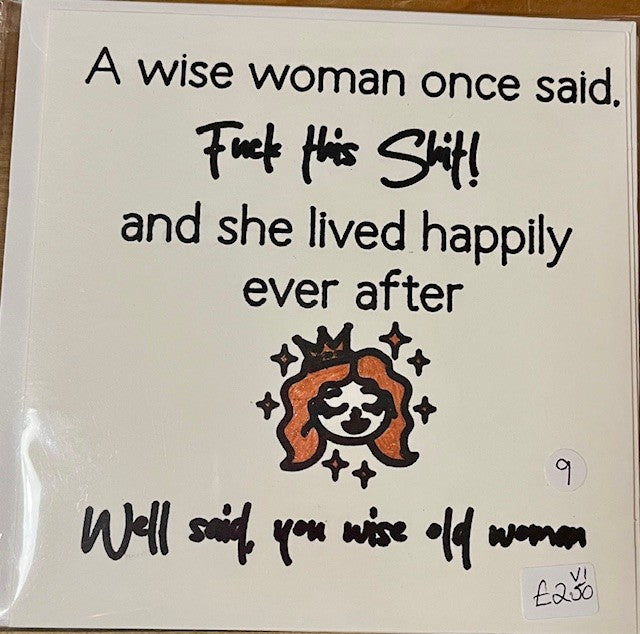 A wise woman once said.
Fuck this Shit!
and she lived happily
ever after
9
Well said, you wise old woman
V1
£2.50